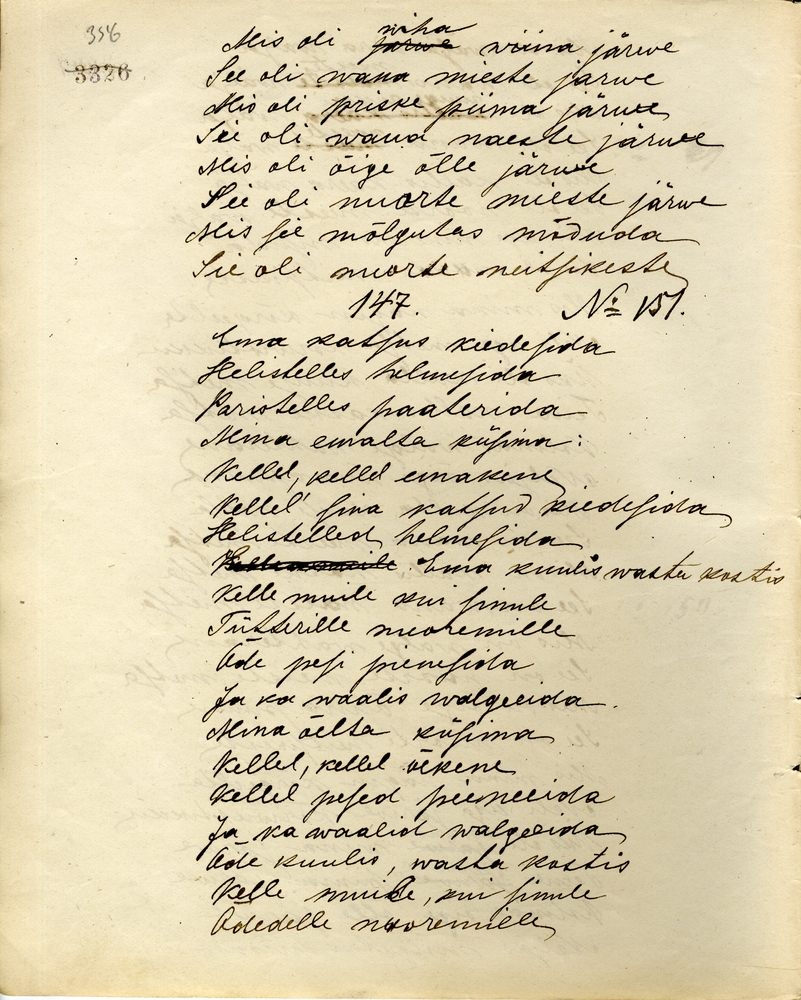 356
3326
Mis oli wiha wiina järwe
See oli wana mieste järwe
Mis oli priske piima järwe
See oli wana naeste järwe
Mis oli õige õlle järwe
See oli nuorte mieste järwe
Mis see mõlgutas mõduda
Sie oli nuorte neitsikeste
147. No 151.
Ema katsus kiedesida
Helistelles helmesida
Paristelles paaterida
Mina emalta küsima:
Kellel, kellel emakene
Kellel' sina katsud kiedesida
Helistelled helmesida
Ema kuulis wasta kostis
Kelle muile kui sinule
Tütterille nuoremille
Õde pesi pienesida
Ja ka waalis walgeeida.
Mina õelta küsima
Kellel, kellel õekene
Kellel pesed pieneeida
Ja ka waalid walgeeida
Õde kuulis, wasta kostis
Kelle muile, kui sinule
Õdedelle nuoremille